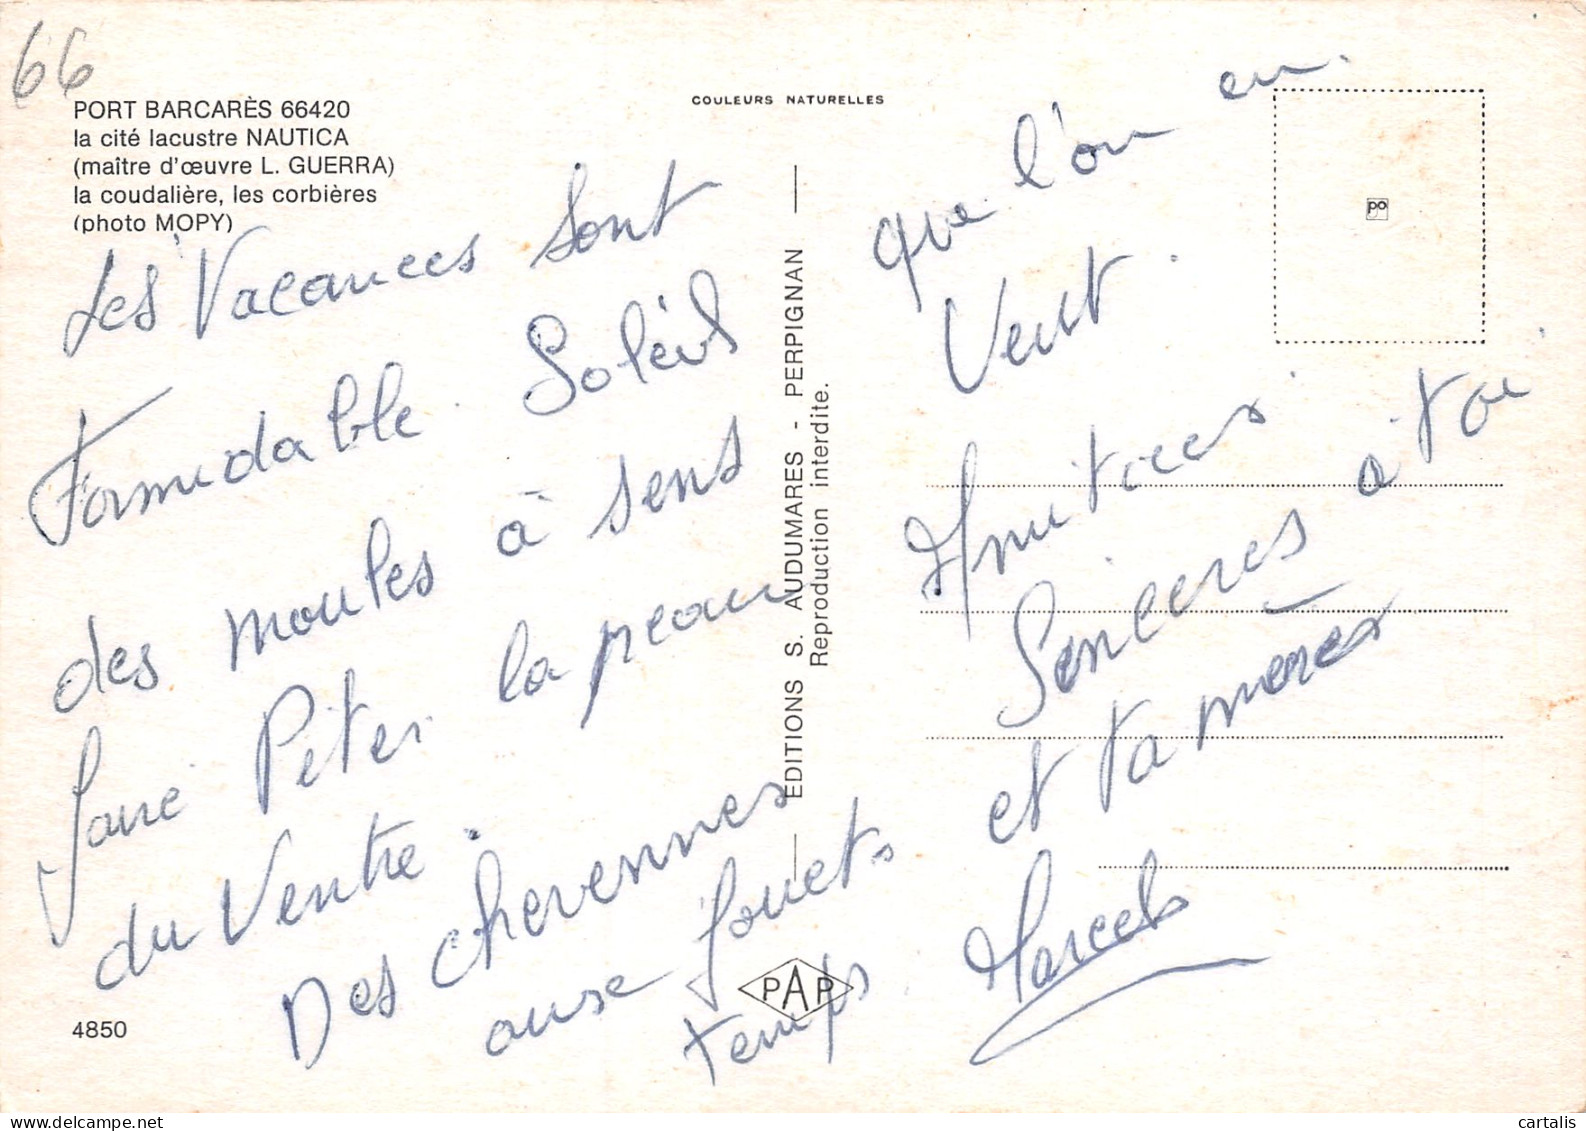 66
PORT BARCARÈS 66420
la cité lacustre NAUTICA
(maître d'œuvre L. GUERRA)
la coudalière, les corbières
(photo MOPY)
COULEURS NATURELLES
Les Vacances sont
Formidable. Soleil
des moules à sens
faire Péter la peau
du Ventre.
Des chevennes
temps
que l'on en
Veut.
Amitiees
Sinceres a toi
et ta mères
Marcel
EDITIONS S. AUDUMARES - PERPIGNAN
Reproduction interdite.
po
PAP
4850
cartalis